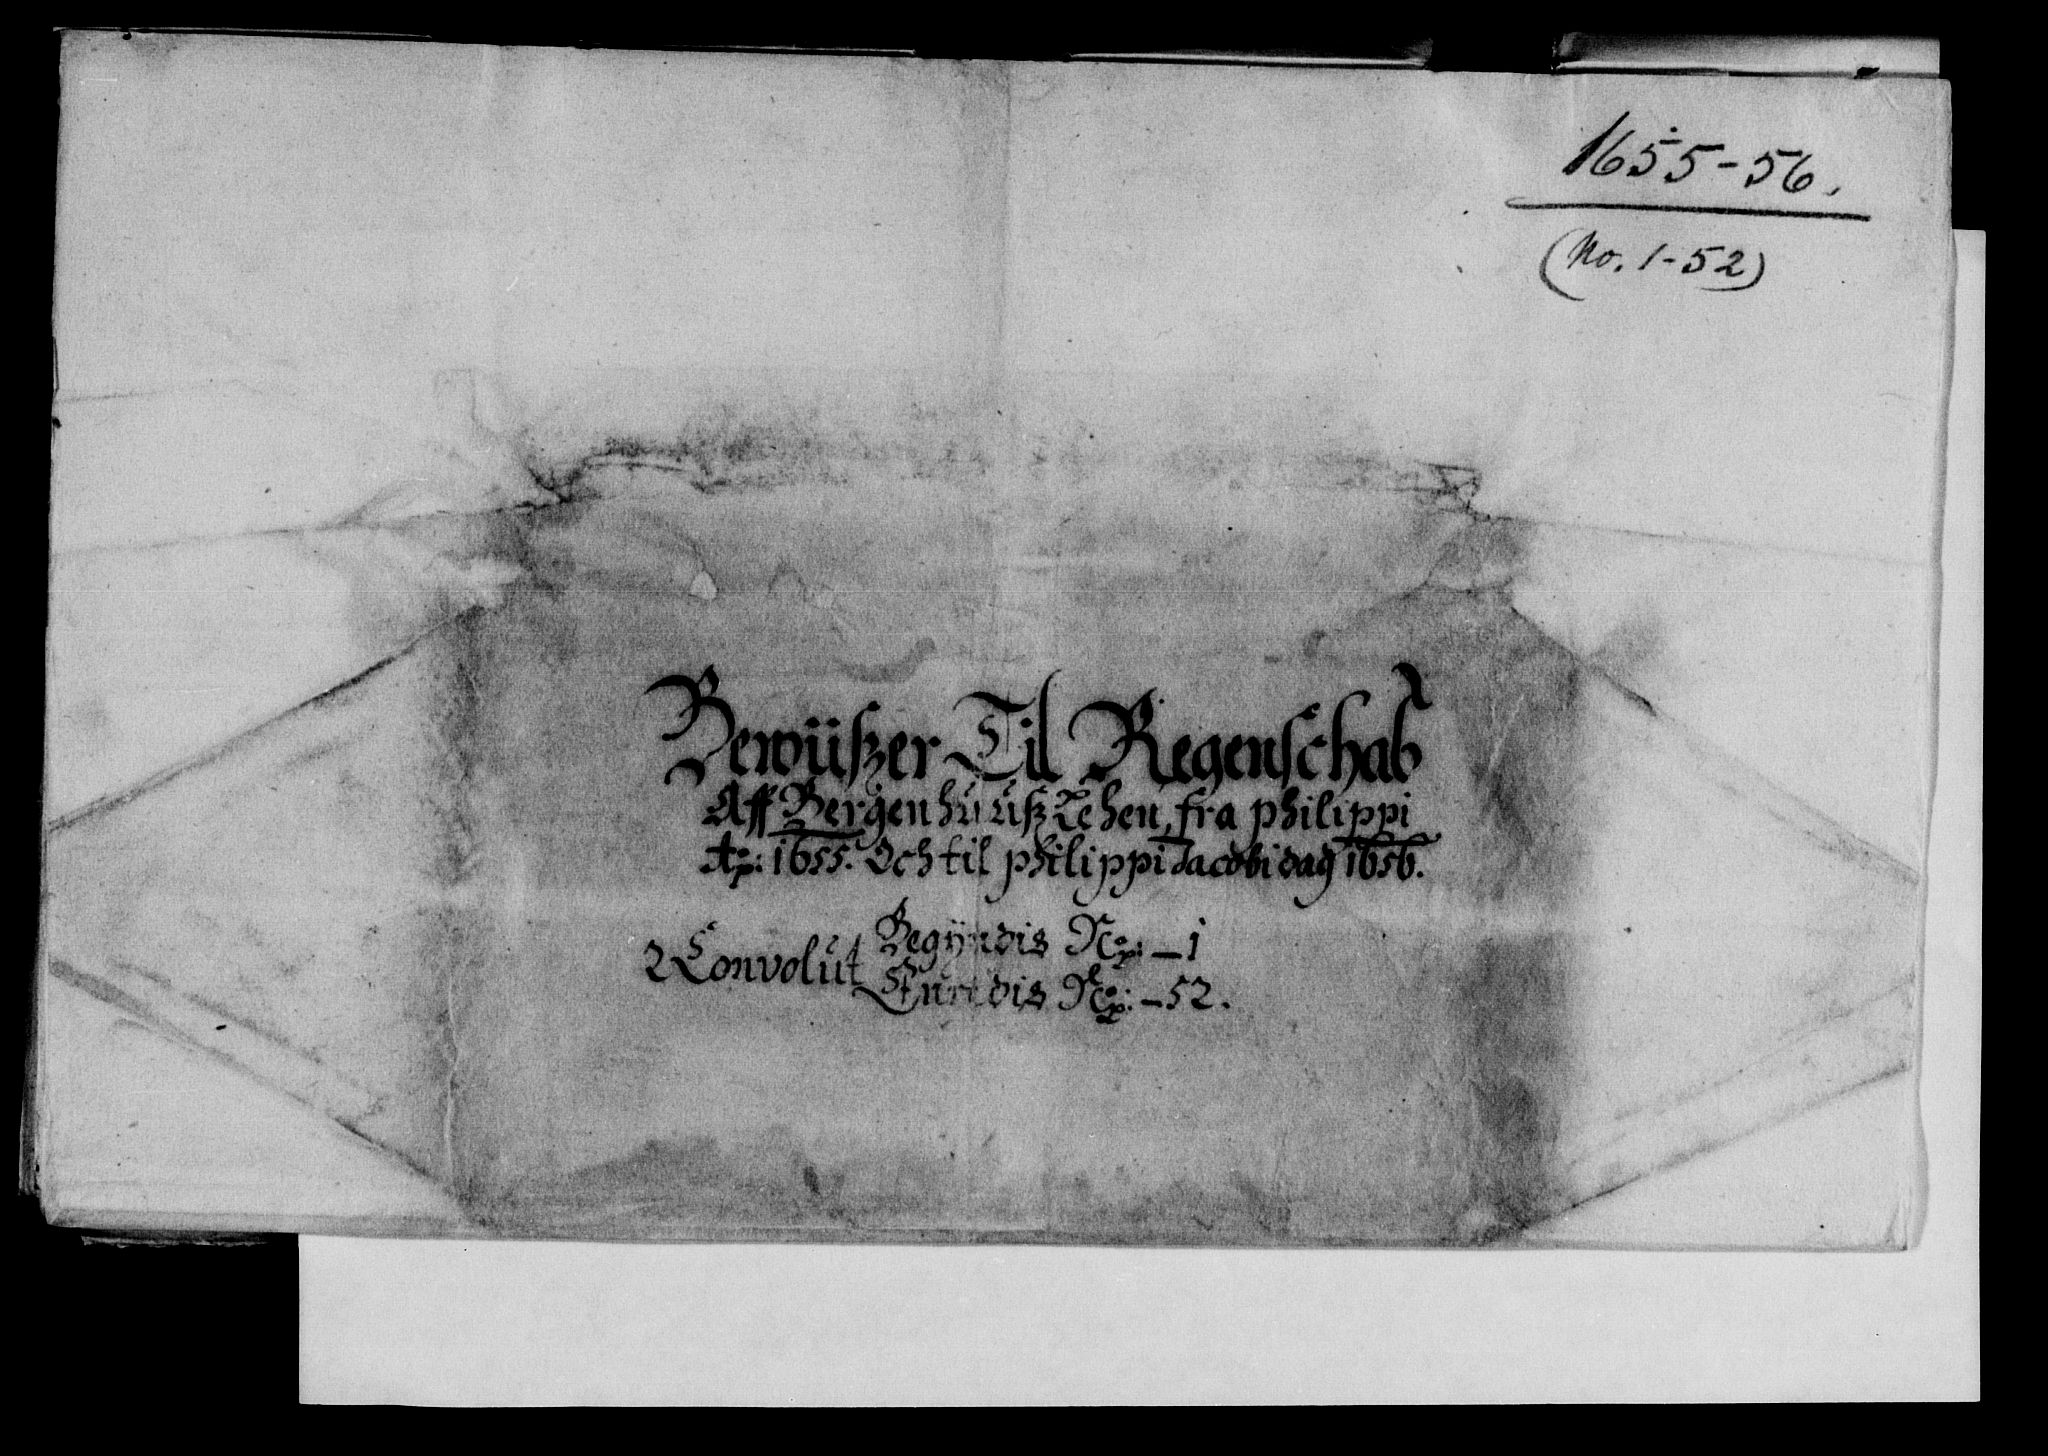 1655-56.
(No. 1-52)
Bewüszer Til Regenschab
Aff Bergenhuusz Lehen, fra philippi
Ao: 1655. Och til philippi Jacobi dag 1656.
2 Convolut
Begyndis No: – 1
Endis No: – 52.